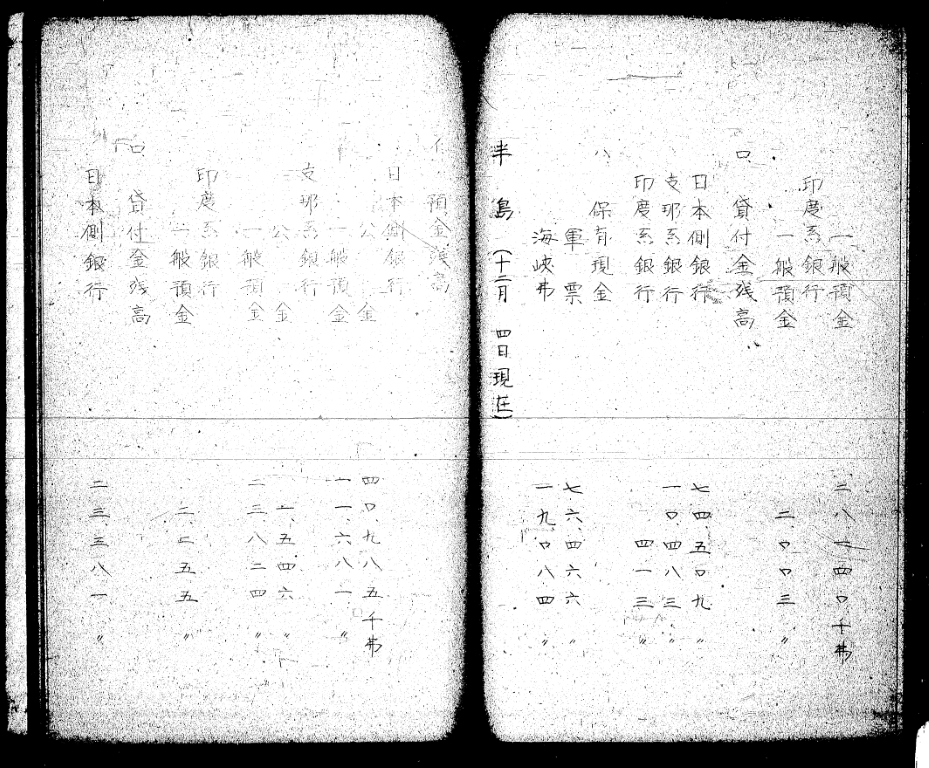 一般預金 二八、四四〇千弗
印度系銀行
一般預金 二、〇〇三〃
ロ 貸付金残高
日本側銀行 七四、五〇九〃
支耶系銀行 一〇、四八三〃
印度系銀行 四一三〃
ハ 保有現金
軍票 七六、四六六〃
海峡弗 一九、〇八四〃
半島(十二月 四日現在)
イ 預金残高
日本側銀行
公金 四〇、九八五千弗
一般預金 一一、六八一〃
支耶系銀行
公金 一、五四六〃
一般預金 二三、八二四〃
印度系銀行
一般預金 二、二五五〃
ロ 貸付金残高
日本側銀行 二三、三八一〃